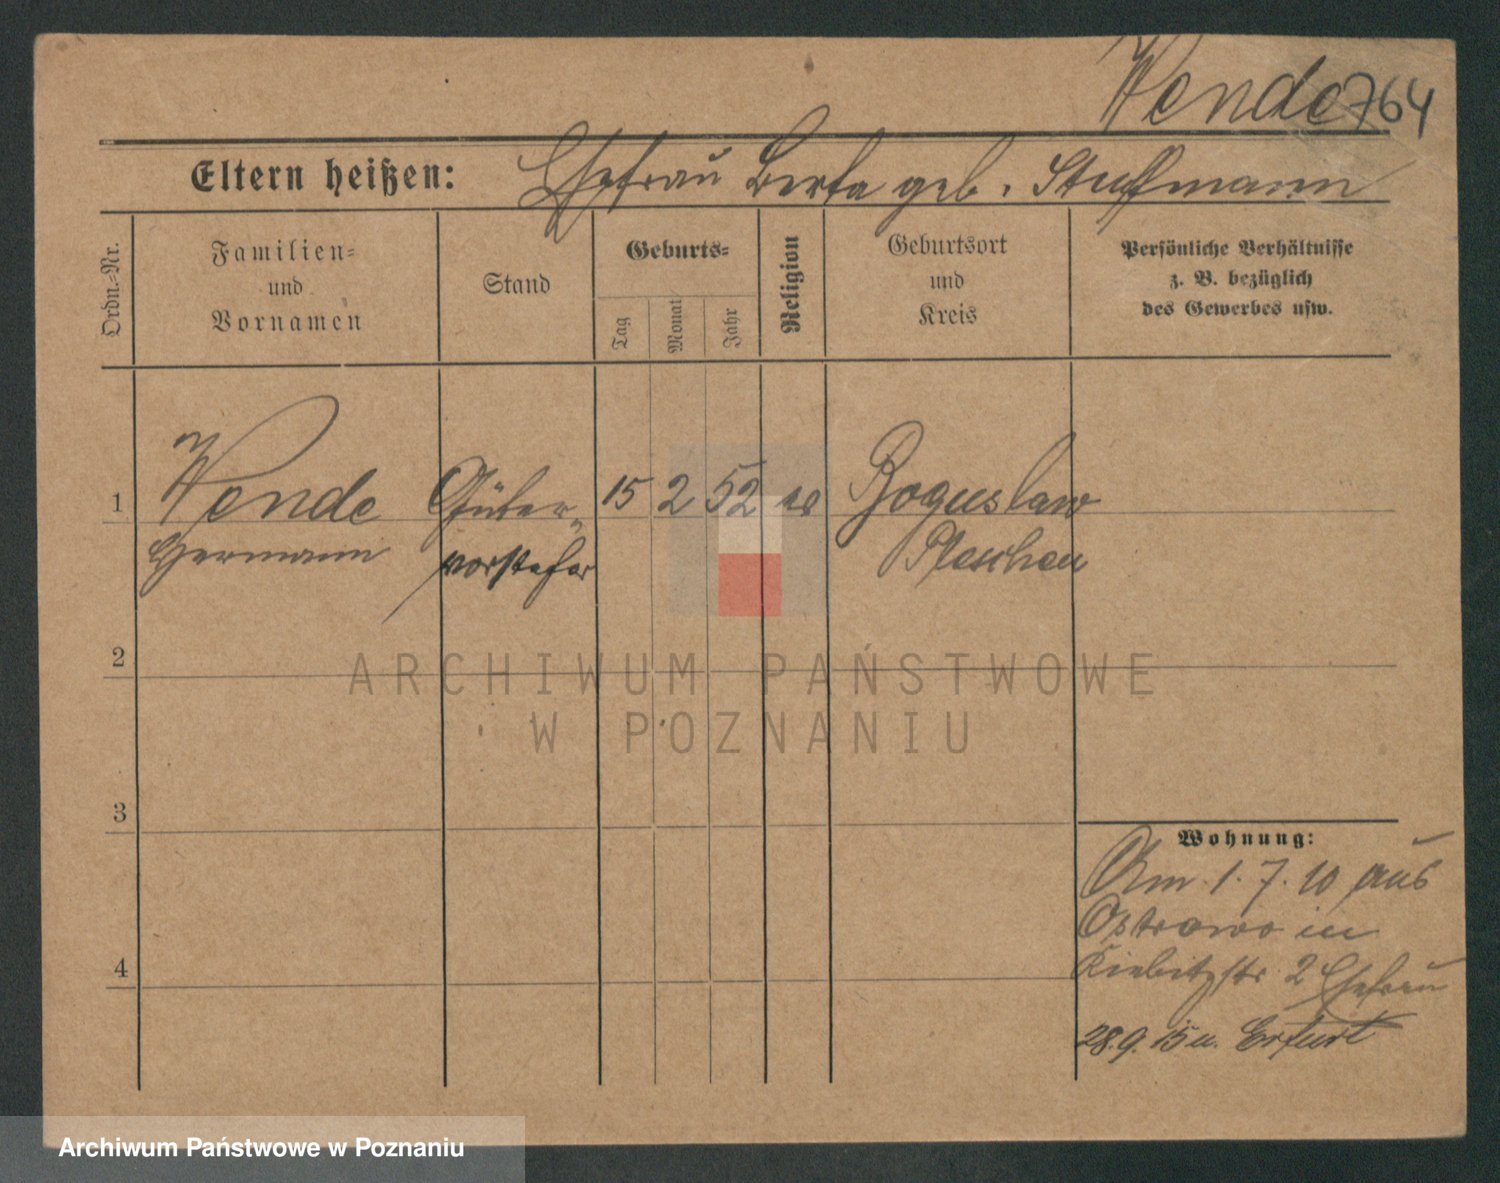 Wende 764
Eltern heißen: Ehefrau Berta geb.
Ordn.-Nr.
Familien- und Vornamen
Stand
Geburts-
Tag
Monat
Jahr
Religion
Geburtsort und Kreis
Persönliche Verhältnisse
z. B. bezüglich
des Gewerbes usw.
1 Wende Güter- 15 2 52 Boguslaw
Hermann vorsteher Pleschen
2
ARCHIWUM PAŃSTWOWE
W POZNANIU
3
Wohnung:
Am 1. 7. 10 aus
Ostrowo in
4
Kiebitzstr 2 Ehefrau
28.9.15 n. Erfurt
Archiwum Państwowe w Poznaniu